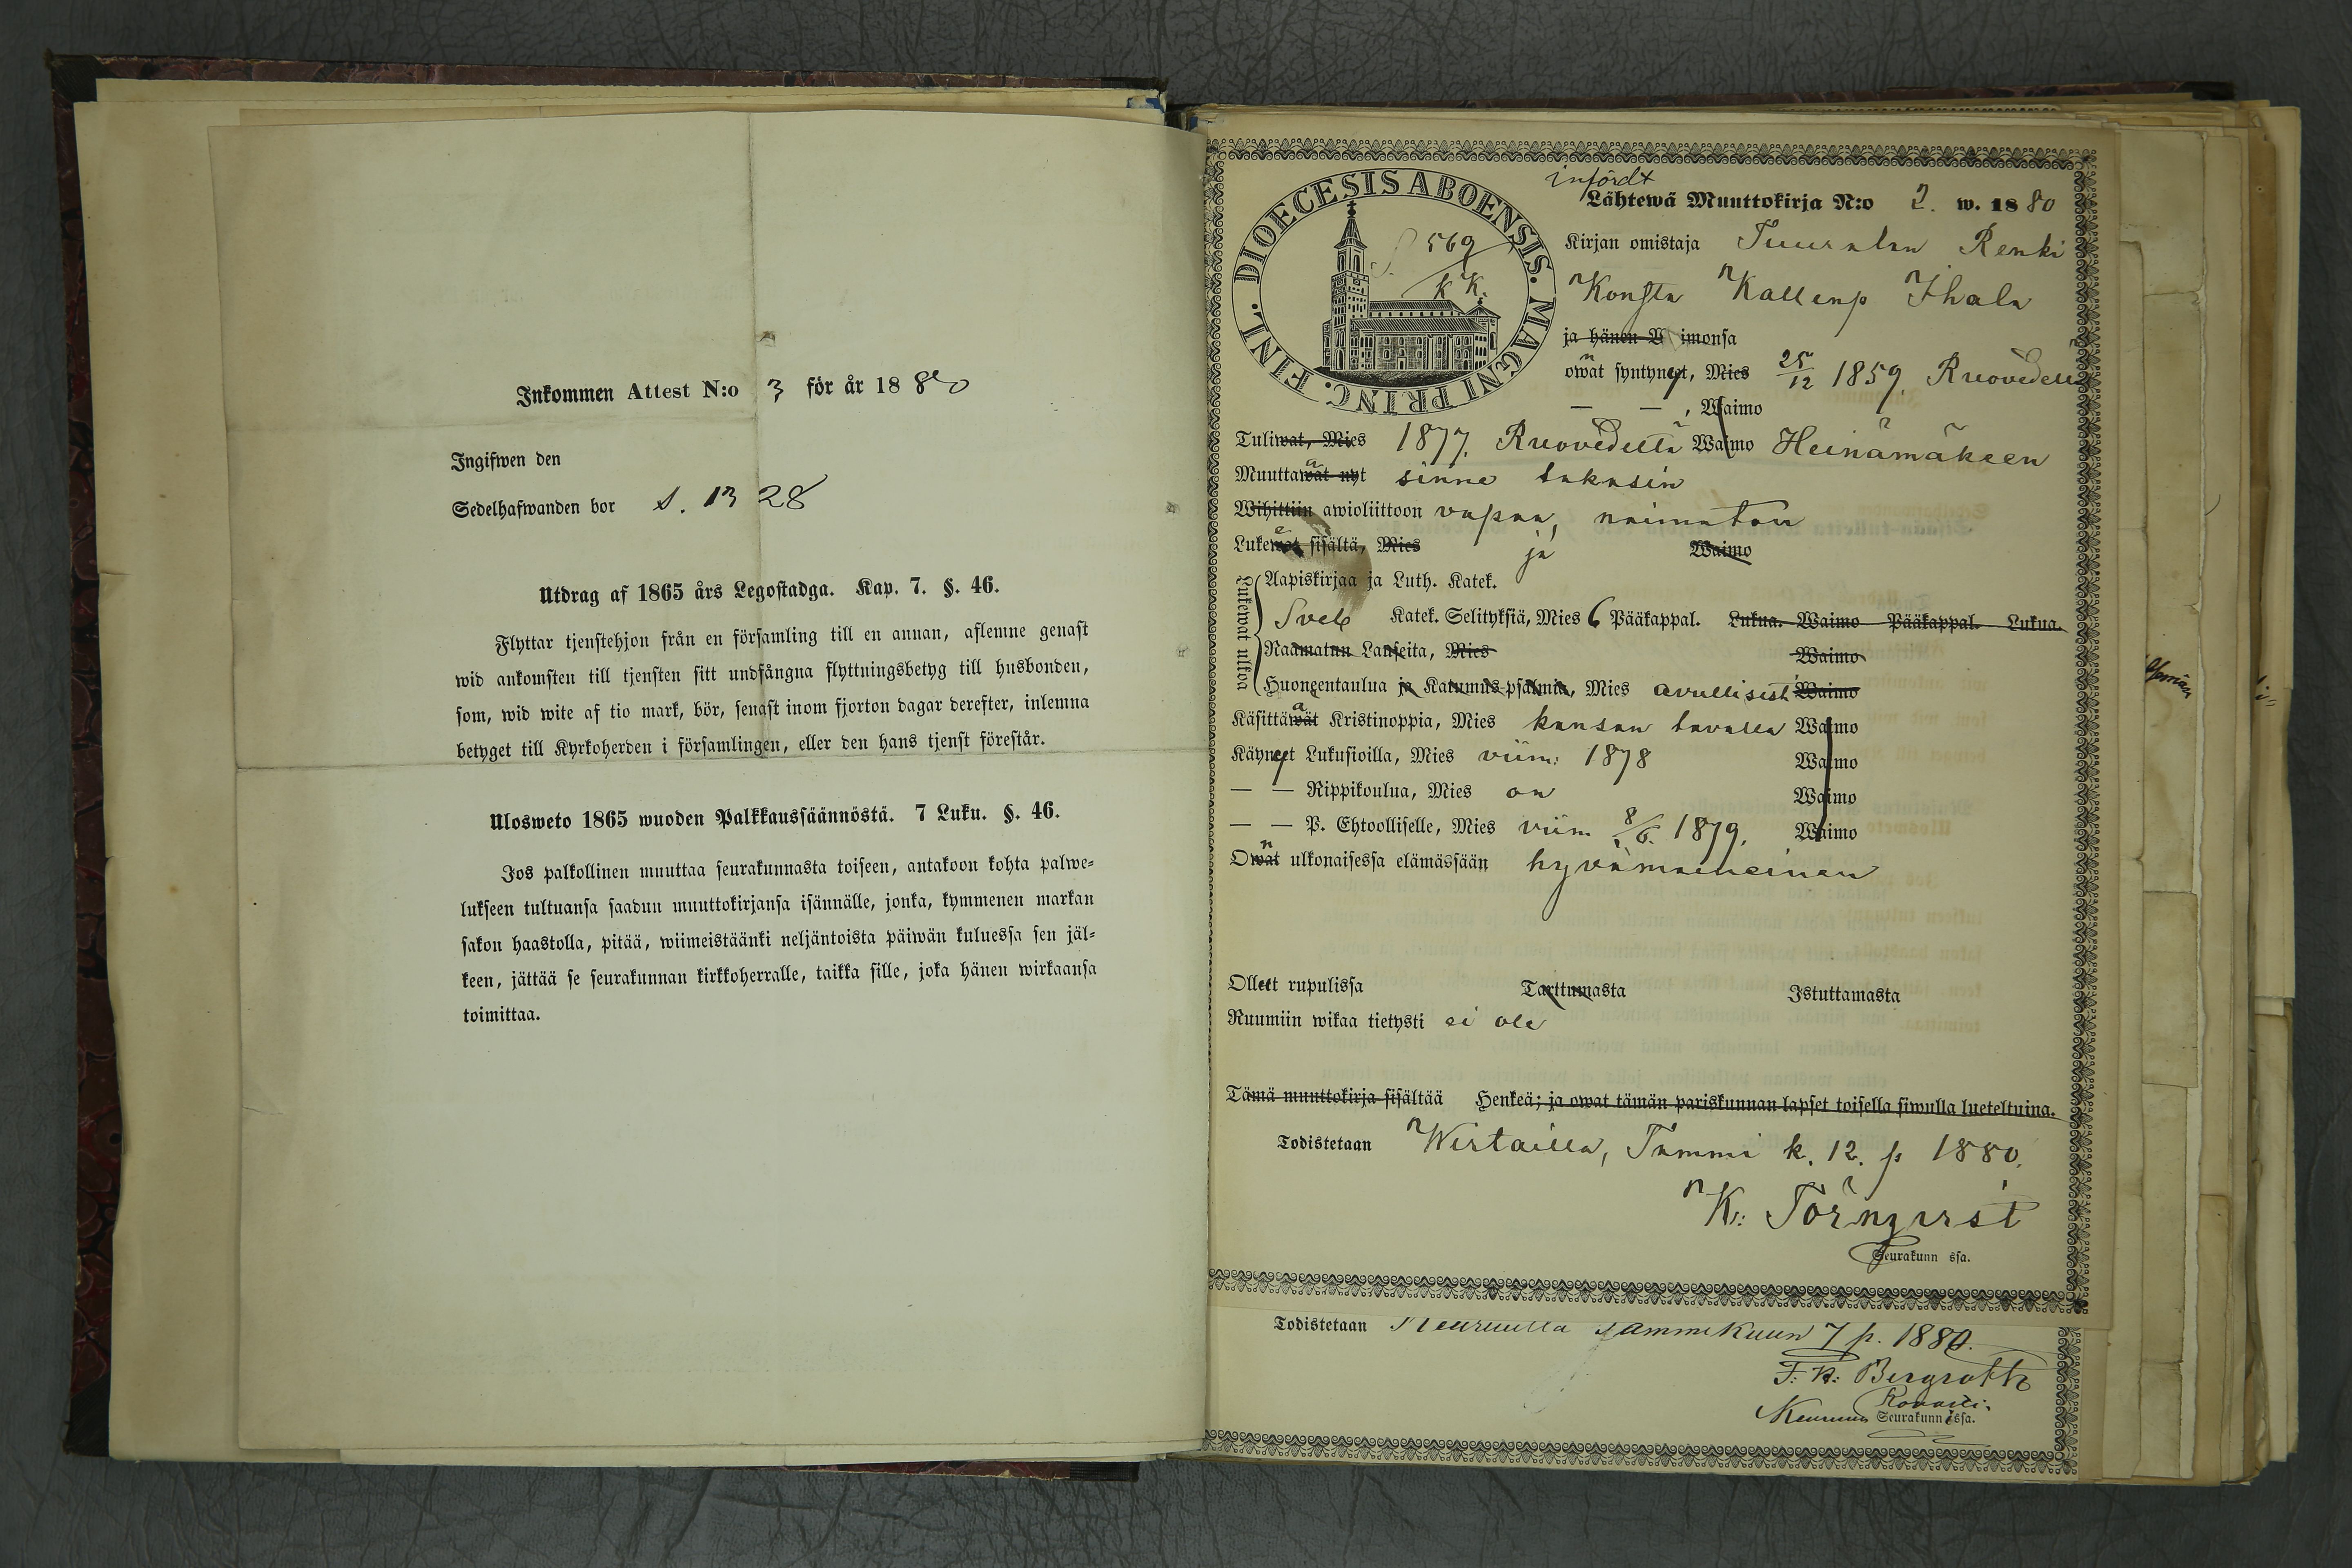 Inkommen Attest N:o 3 för år 1880
Ingifwen den
Sedelhafwanden bor s. 1328
Utdrag af 1865 års Legostadga. Kap. 7. §. 46.
Flyttar tjenstehjon från en församling till en annan, aflemne genast
wid ankomsten till tjensten sitt undfångna flyttningsbetyg till husbonden,
som, wid wite af tio mark, bör, senast inom fjorton dagar derefter, inlemna
betyget till Kyrkoherden i församlingen, eller den hans tjenst förestår.
Ulosweto 1865 wuoden Palkkaussäännöstä. 7 Luku. §. 46.
Jos palkollinen muuttaa seurakunnasta toiseen, antakoon kohta palwe-
lukseen tultuansa saadun muuttokirjansa isännälle, jonka, kymmenen markan
sakon haastolla, pitää, wiimeistäänki neljäntoista päiwän kuluessa sen jäl-
keen, jättää se seurakunnan kirkkoherralle, taikka sille, joka hänen wirkaansa
toimittaa.
DIOECESIS ABOENSIS. MAGNI PRINC. FINL.
S. 569
K K.
infördt
Lähtewä Muuttokirja N:o 2. w. 1880
Kirjan omistaja Tuuralan Renki
Konsta Kallenp Ihala
ja hänen W imonsa
owat syntynyt, Mies 25/12 1859 Ruovedellä
— — , Waimo
Tuliwat, Mies 1877. Ruovedeltä Waimo Heinämäkeen
Muuttawat nyt sinne takasin
Wihittiin awioliittoon vapaa, naimaton
Lukewat sisältä, Mies ja Waimo
Lukewat ulkoa
Aapiskirjaa ja Luth. Katek.
Sveb Katek. Selityksiä, Mies 6 Pääkappal. Lukua. Waimo Pääkappal. Lukua.
Raamatun Lauseita, Mies Waimo
Huoneentaulua ja Katumus-psalmia, Mies avullisest Waimo
Käsittäwät Kristinoppia, Mies kansan tavalla Waimo
Käyneet Lukusioilla, Mies viim: 1878 Waimo
— — Rippikoulua, Mies on Waimo
— — P. Ehtoolliselle, Mies viim 8/6. 1879. Waimo
Owat ulkonaisessa elämässään hyvämaineinen
Olleet rupulissa Tarttumasta Istuttamasta
Ruumiin wikaa tietysti ei ole
Tämä muuttokirja sisältää Henkeä; ja owat tämän pariskunnan lapset toisella siwulla lueteltuina.
Todistetaan Wirtailla, Tammi k. 12. p 1880.
K: Törnqvist
Seurakunn ssa.
Todistetaan Keuruulla Tammikuun 7 p. 1880.
F: K: Bergroth
Rovasti.
Keuruun Seurakunnissa.